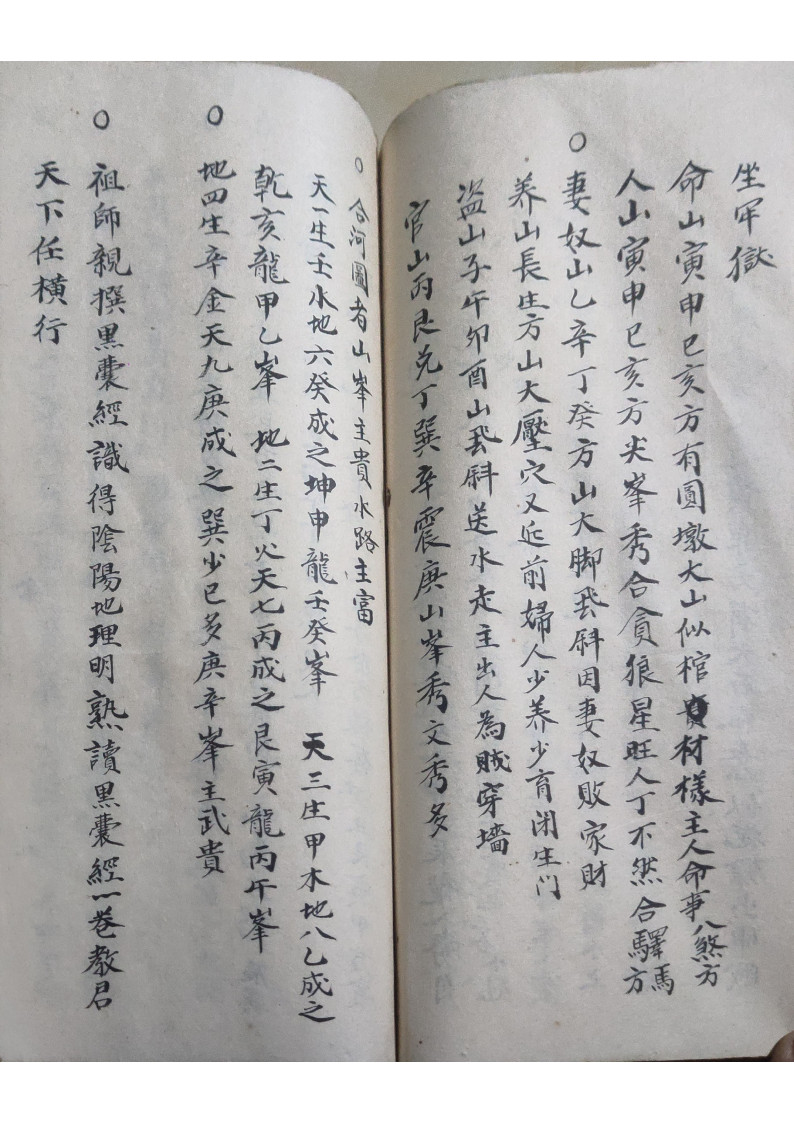 坐牢獄
命山寅申巳亥方有圓墩大山似棺材樣主人命事八煞方
人山寅申巳亥方尖峯秀合貪狼星旺人丁不然合驛馬方
○妻奴山乙辛丁癸方山大脚飛斜因妻奴敗家財
养山長生方山大壓穴又近前婦人少养少育闭生门
盗山子午卯酉山飛斜送水走主出人為賊穿墻
官山丙艮兑丁巽辛震庚山峯秀文秀多
○合河圖者山峯主貴水路主富
天一生壬水地六癸成之坤申龍壬癸峯 天三生甲木地八乙成之
乾亥龍甲乙峯 地二生丁火天七丙成之艮寅龍丙午峯
○地四生辛金天九庚成之巽少巳多庚辛峯主武貴
○祖師親撰黑囊經識得陰陽地理明熟讀黑囊經一卷教君
天下任橫行